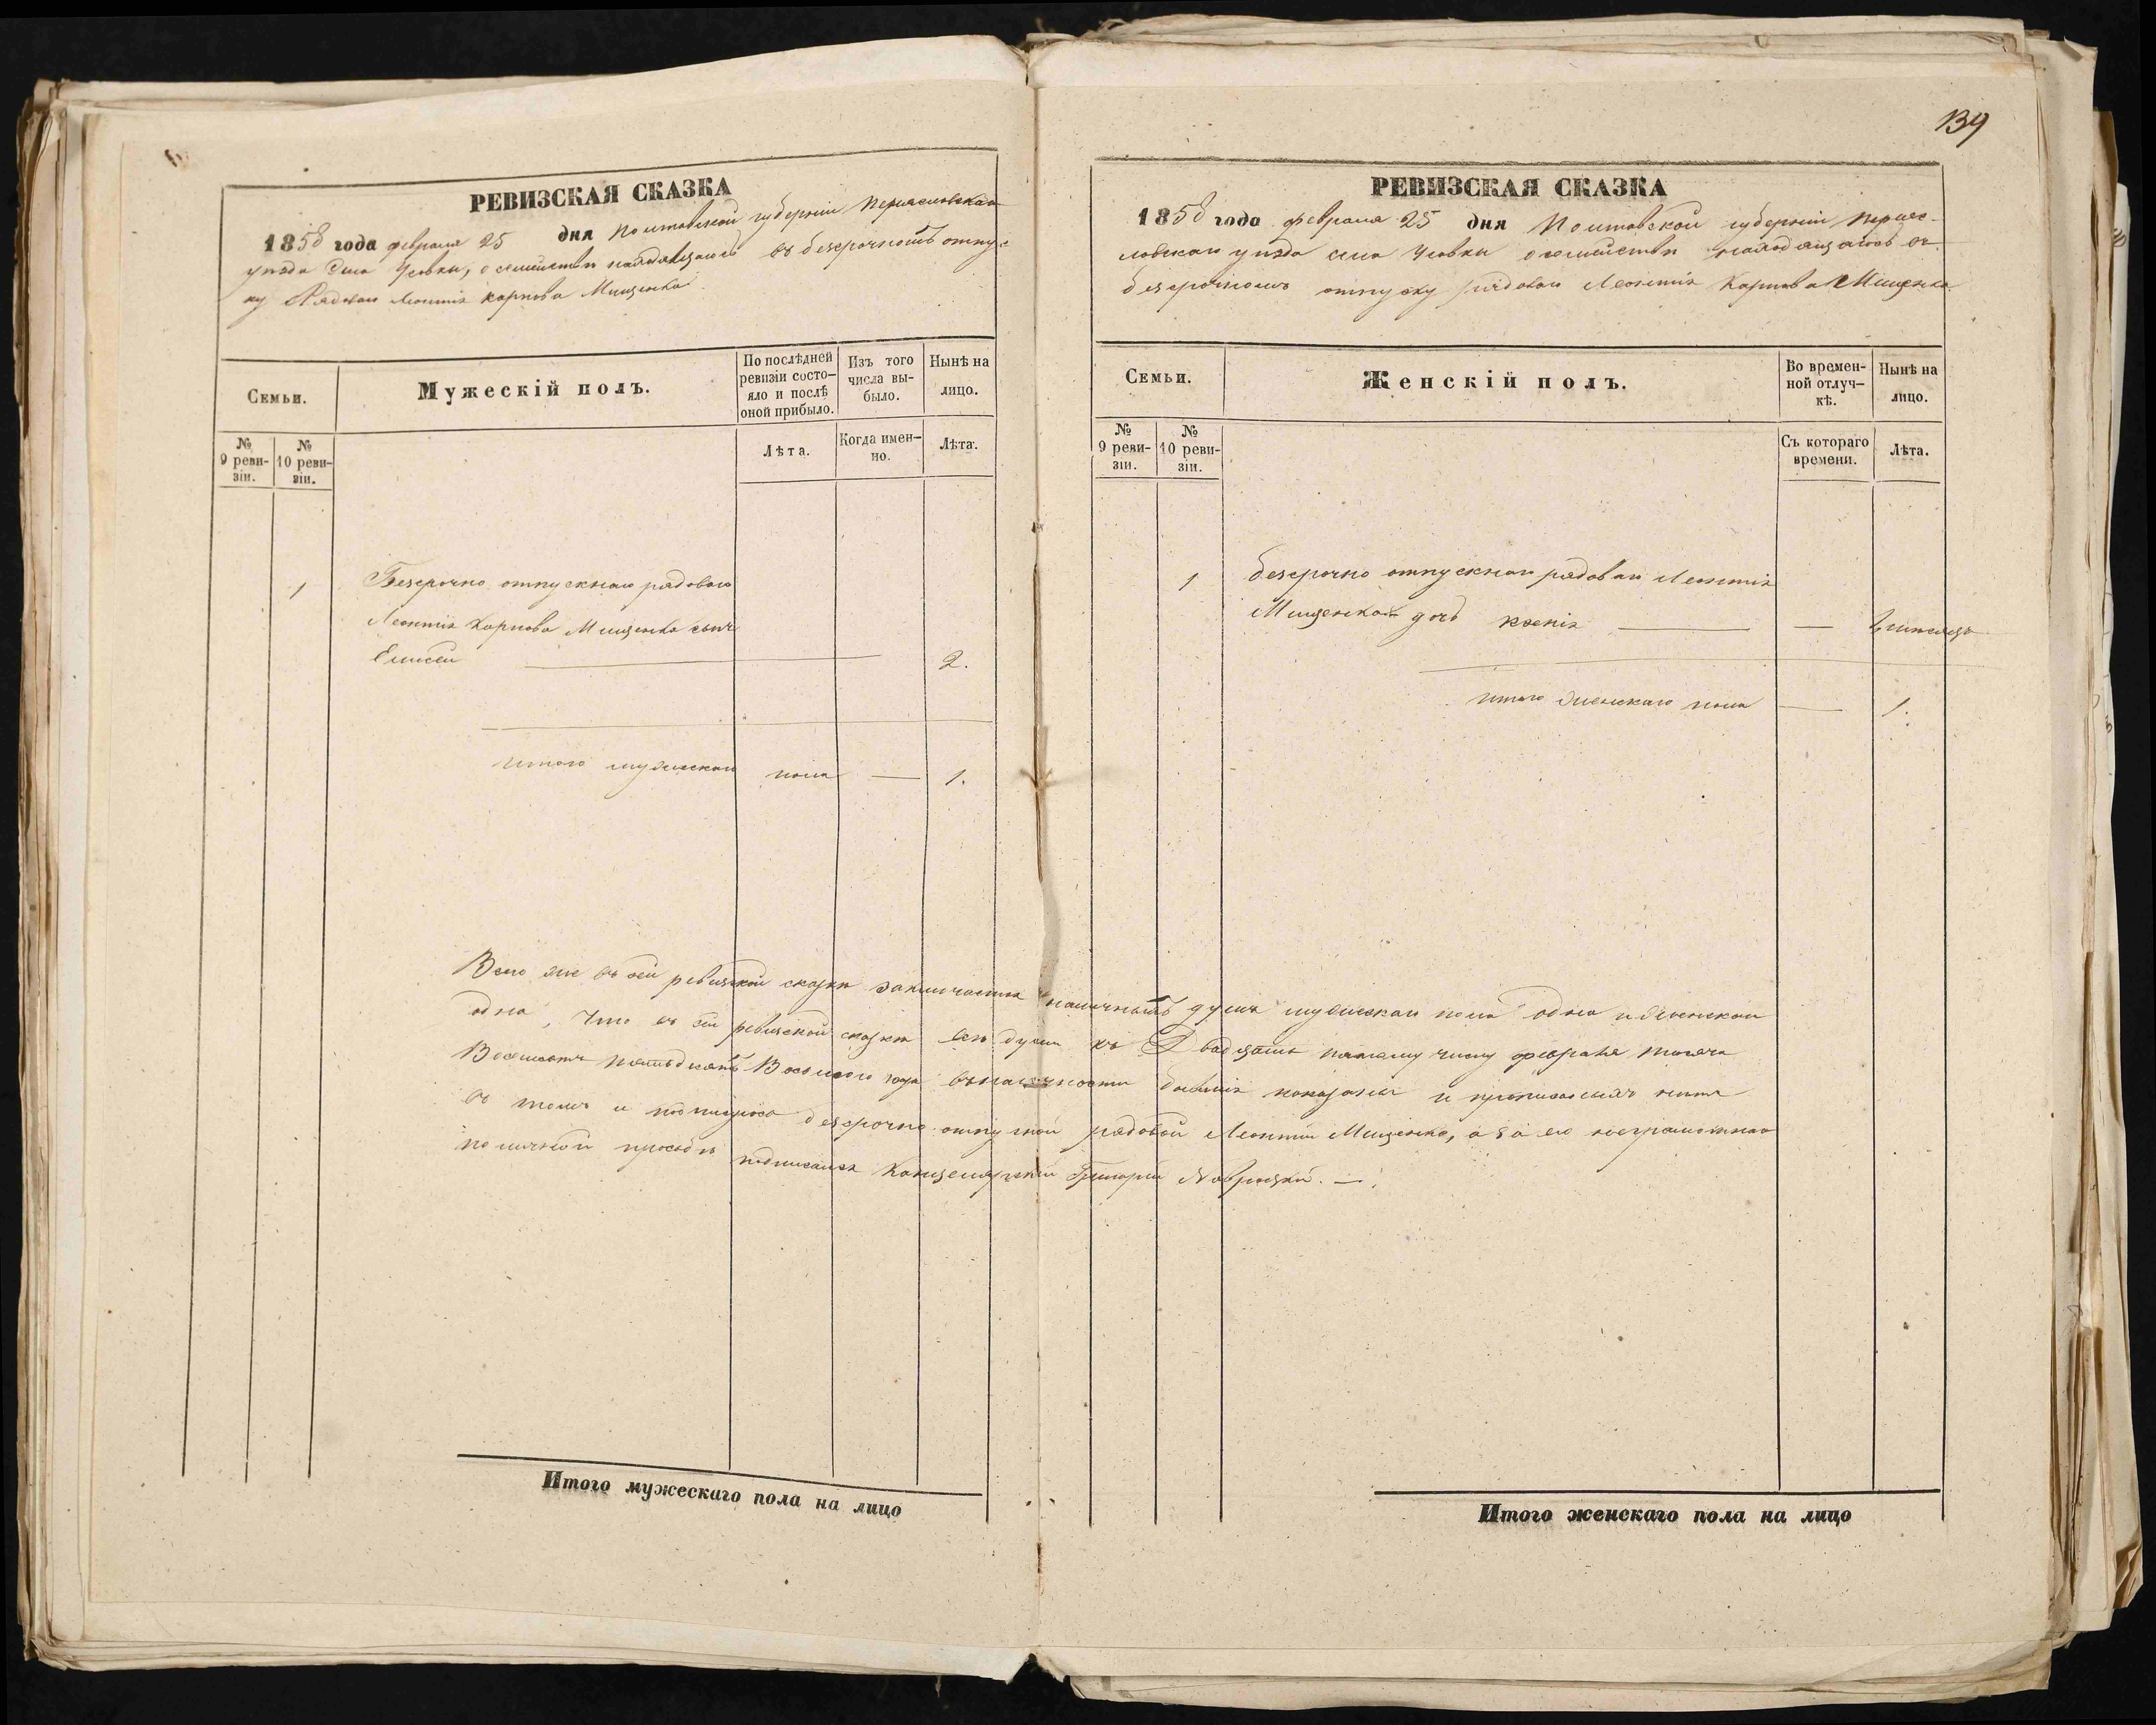 139
РЕВИЗСКАЯ СКАЗКА
1858 года февраля 25 дня Полтавской губерніи Переяславскаго
уѣзда села Усовки, о семействѣ находящагося въ безсрочномъ отпус
ку Рядоваго Леонтія Карпова Мищенка
Семьи.
Мужескій полъ.
По послѣдней ревизіи состо-
яло и послѣ оной прибыло.
Изъ того числа вы-
было.
Нынѣ на лицо.
№ 9 реви-
зіи.
№ 10 реви-
зіи.
Лѣта.
Когда имен-
но.
Лѣта.
1 Безсрочно отпускнаго рядоваго
Леонтія Карпова Мищенка сынъ
Елисей 2.
Итого мужескаго пола 1.
РЕВИЗСКАЯ СКАЗКА
1858 года февраля 25 дня Полтавской губерніи Переяс-
лавскаго уѣзда села Усовки о семействѣ находящагося въ
безсрочномъ отпуску рядоваго Леонтія Карпова Мищенка
Семьи.
Женскій полъ.
Во времен-
ной отлуч-
кѣ.
Нынѣ на лицо.
№ 9 реви-
зіи.
№ 10 реви-
зіи.
Съ котораго времени.
Лѣта.
1 безсрочно отпускнаго рядоваго Леонтія
Мищенка дочь Ксенія
Итого женскаго пола 1.
Всего же въ сей ревизской сказкѣ заключается наличныхъ душъ мужескаго пола одна и женскаго
одна, Что въ сей ревизской сказкѣ всѣ души къ Двадцать пятому числу февраля тысяча
Восемсотъ пятьдесятъ Восьмого года въ наличности бывшія показаны и прописныхъ нѣтъ
въ томъ и подписуюсь безсрочно отпускной рядовой Леонтій Мищенко, а за его неграмотнаго
по личной просьбѣ подписался Канцелярскій Григорій
Итого мужескаго пола на лицо
Итого женскаго пола на лицо